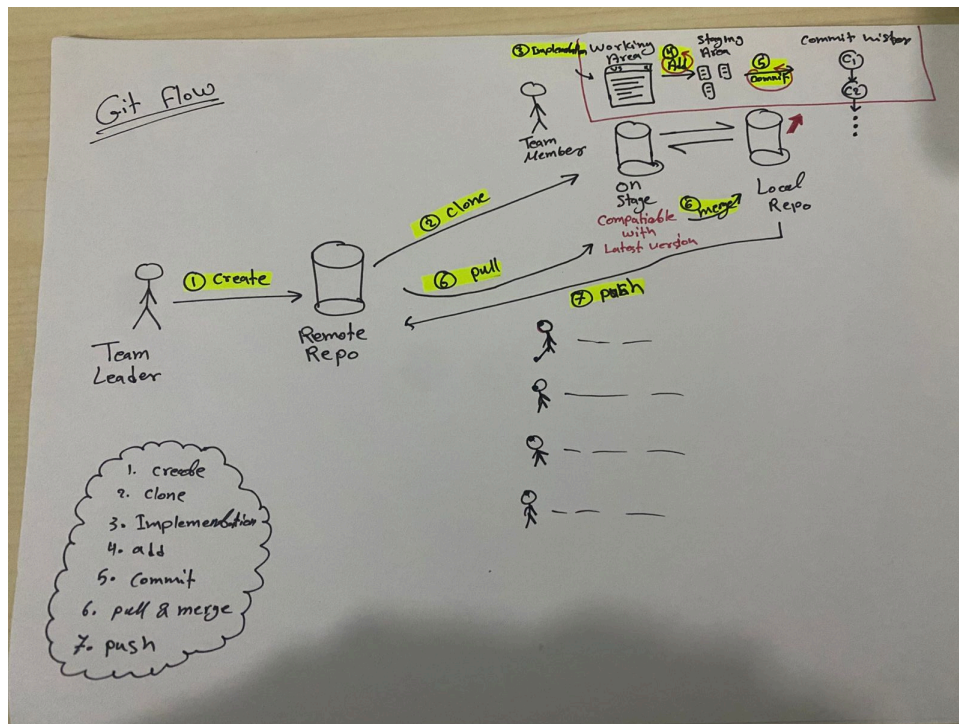 Git Flow
③ Implementation
Working
Area
④
Add
Staging
Area
⑤
Commit
Commit history
C1
C2
Team
Member
② clone
On
Stage
Compatiable
with
Latest version
⑥ merge
Local
Repo
① Create
⑥ pull
⑦ push
Team
Leader
Remote
Repo
1. create
2. clone
3. Implementation
4. add
5. Commit
6. pull & merge
7. push